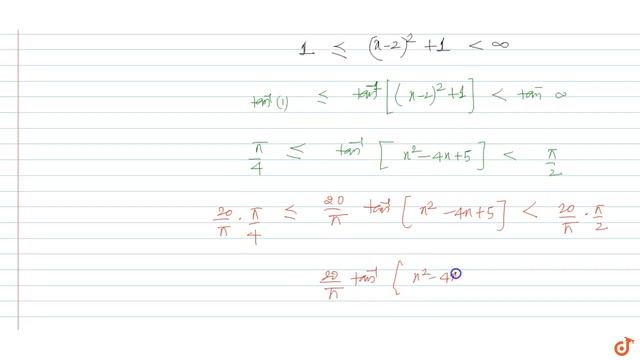 1 ≤ (x-2)² +1 < ∞
tan⁻¹(1) ≤ tan⁻¹[(x-2)²+1] < tan⁻ ∞
π/4 ≤ tan⁻¹[x²-4x+5] < π/2
20/π · π/4 ≤ 20/π tan⁻¹[x²-4x+5] < 20/π · π/2
20/π tan⁻¹[x²-4x